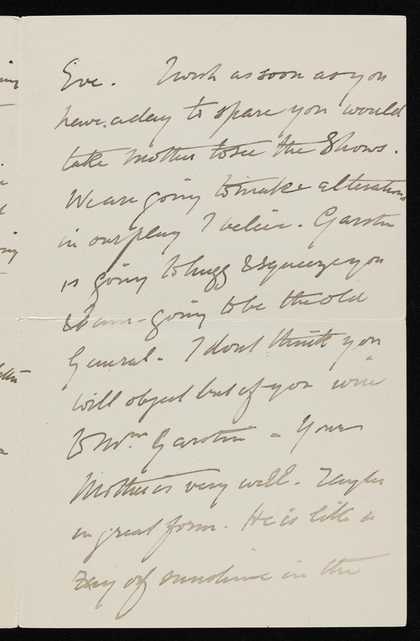 Eve. I wish as soon as you
have a day to spare you would
take Mother to see the Shows.
We are going to make alterations
in our play I believe. Garstin
is going to hugg & squeeze you
& I am going to be the old
General. I dont think you
will object but if you
to Mrs. Garstin - Your
Mother is very well.
in great form. He is like a
ray of sunshine in the